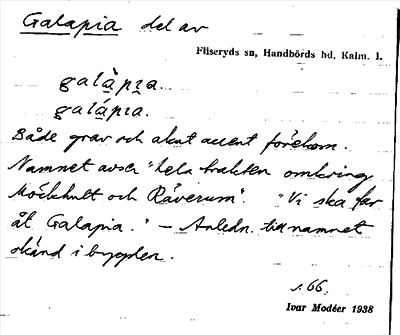 Galapia del av
Fliseryds sn, Handbörds hd, Kalm. l.
galàpıa.
galápıa.
Både grav och akut accent förekom.
Namnet avser "hela trakten omkring
Möckhult och Räverum". "Vi ska far
åt Galapia." – Anledn. till namnet
okänd i bygden.
s. 66.
Ivar Modéer 1938